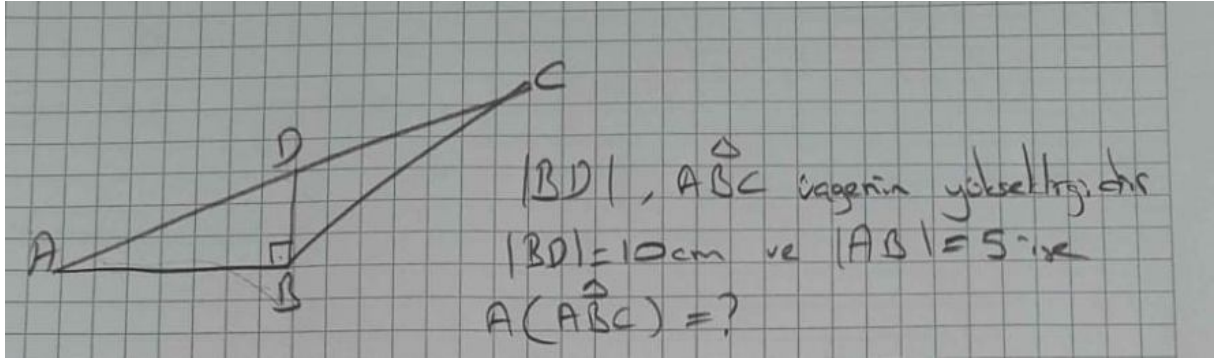 C
D
|BD|, ABC üçgenin yüksekliğidir
A
|BD|=10cm ve |AB|=5 ise
B
A(ABC)=?